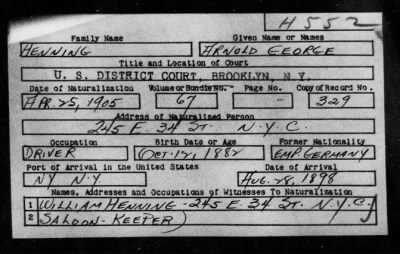 H552
Family Name Given Name or Names
HENNING ARNOLD GEORGE
Title and Location of Court
U. S. DISTRICT COURT, BROOKLYN, N.Y.
Date of Naturalization Volume or Bundle No. Page No. Copy of Record No.
APR. 25, 1905 67 - 329
Address of Naturalized Person
245 E. 34 ST. N.Y.C.
Occupation Birth Date or Age Former Nationality
DRIVER OCT. 12, 1882 EMP. GERMANY
Port of Arrival in the United States Date of Arrival
NY N.Y. AUG. 28, 1898
Names, Addresses and Occupations of Witnesses To Naturalization
1 WILLIAM HENNING - 245 E. 34 ST. N.Y.C.
2 SALOON-KEEPER)